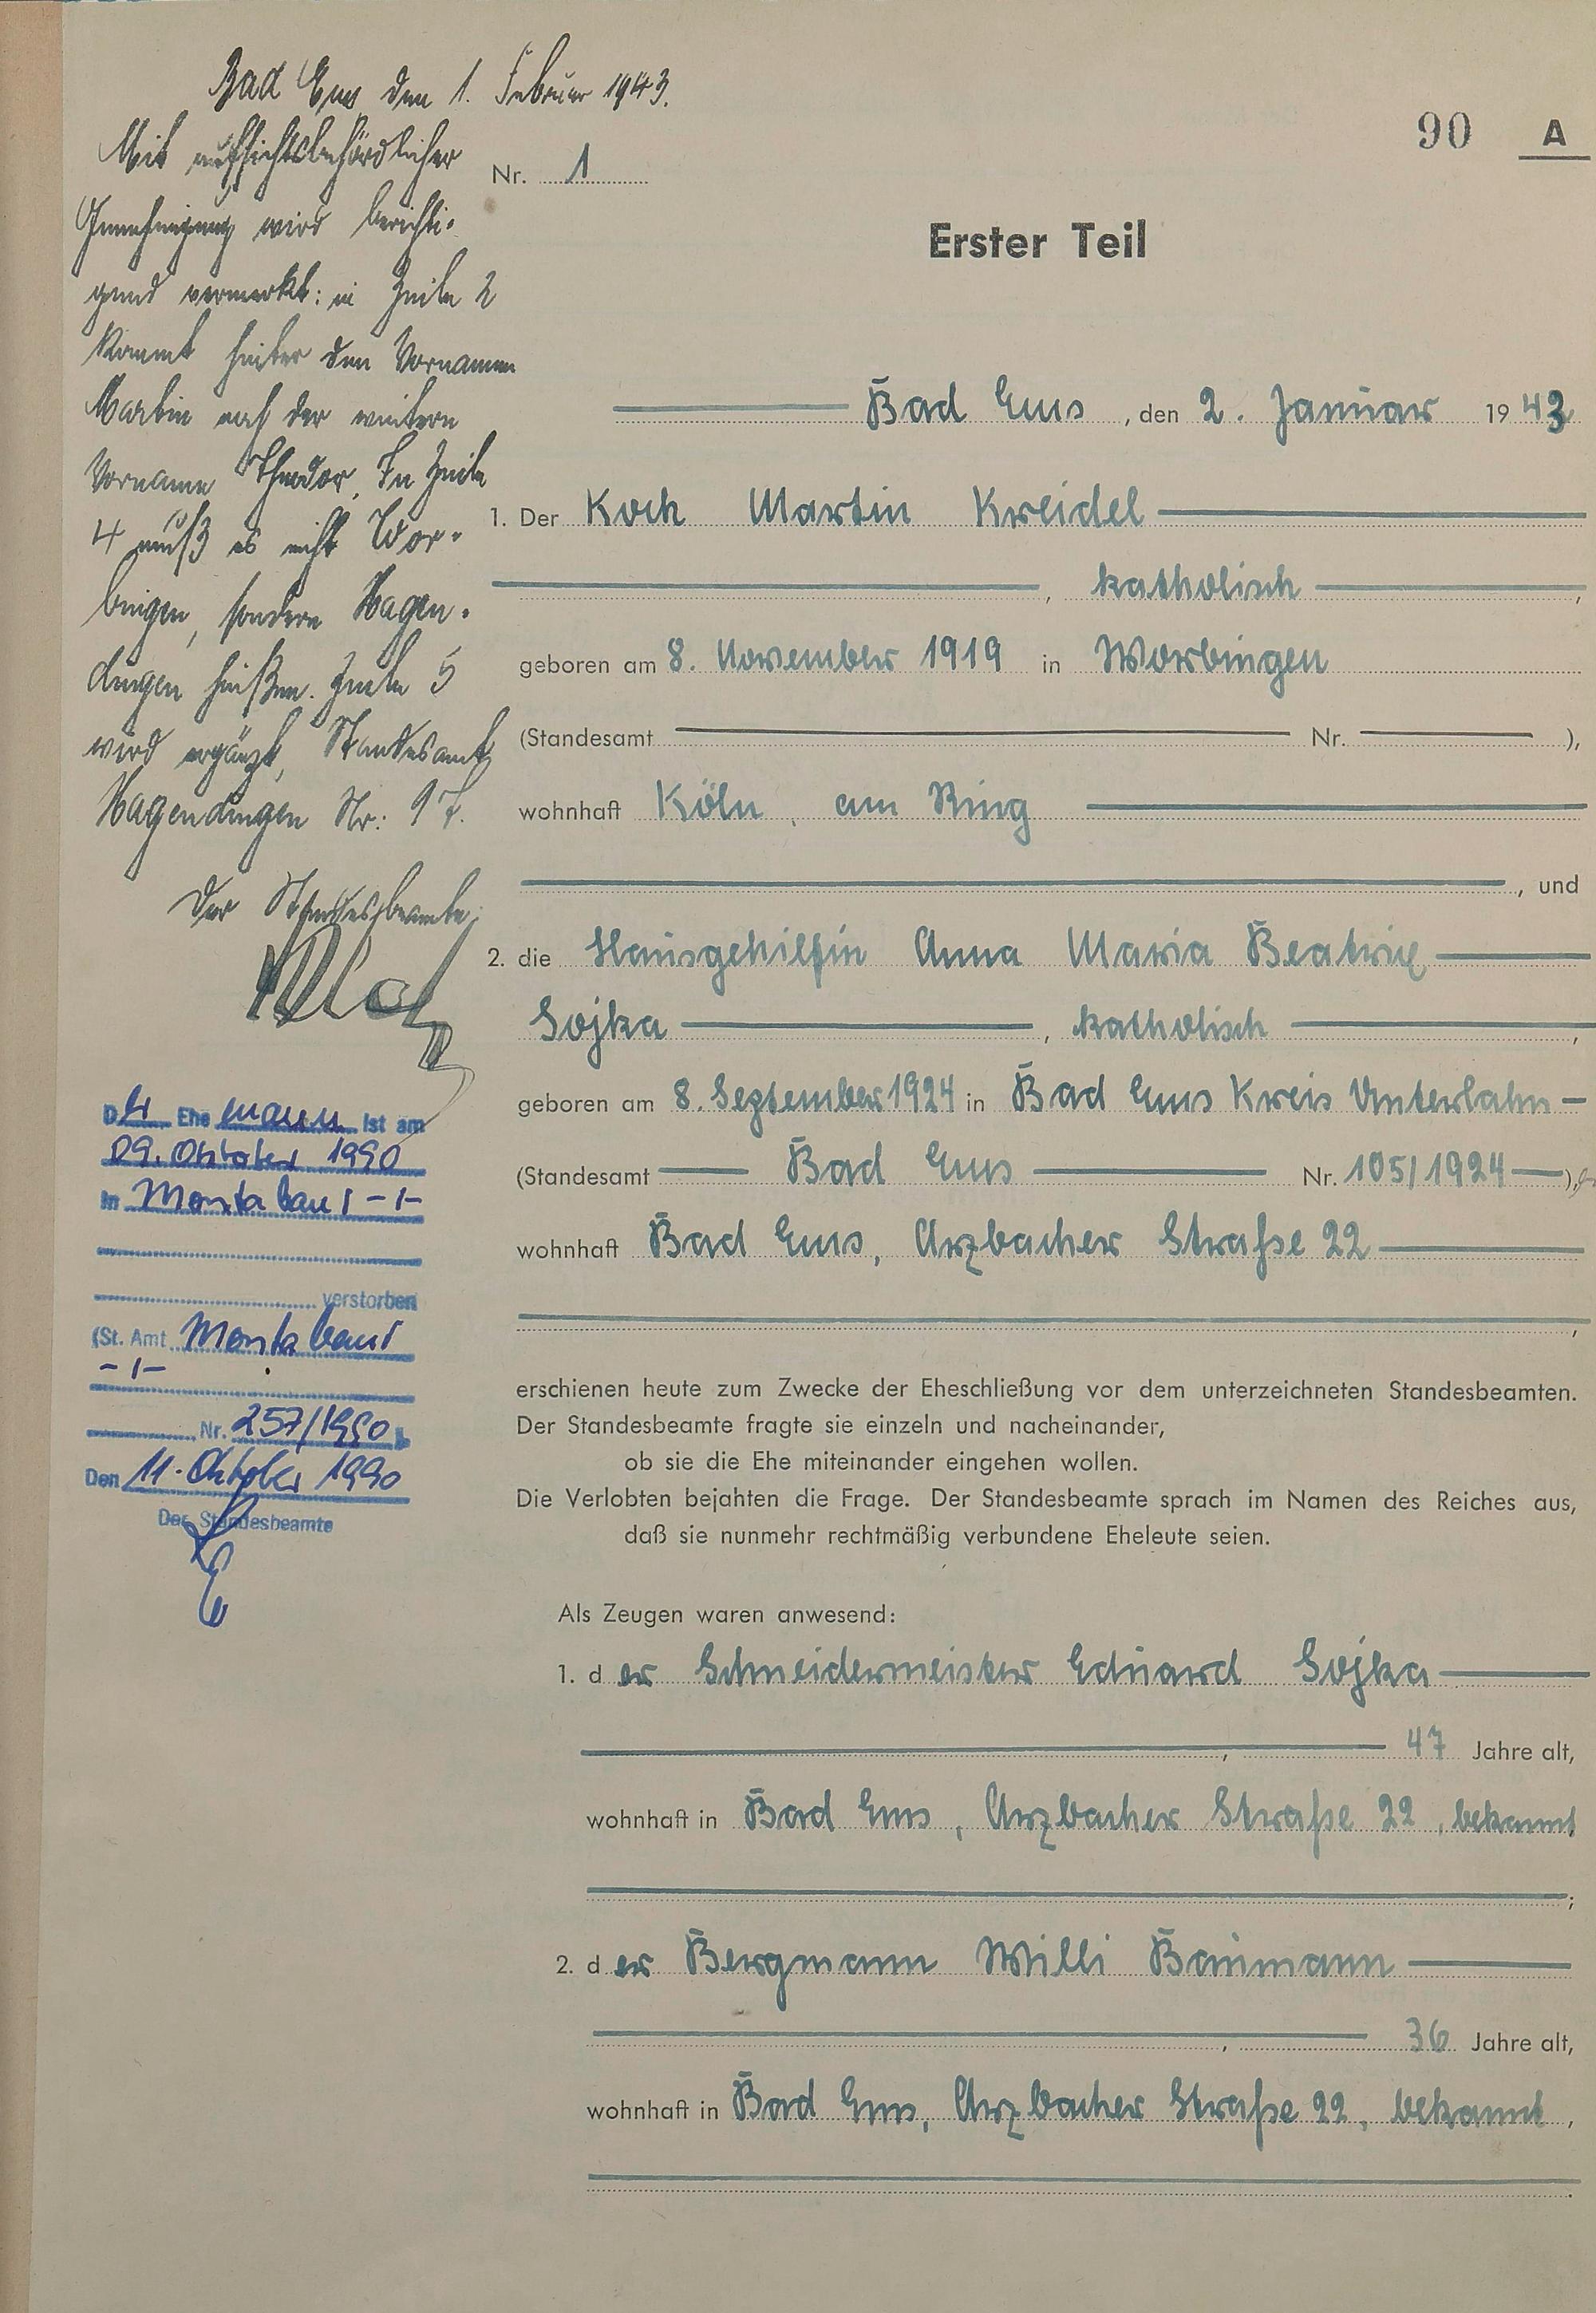 Bad Ems den 1. Februar 1943.
Mit aufsichtsbehördlicher
Genehmigung wird berichti-
gend vermerkt: in Zeile 2
kommt hinter den Vornamen
Martin noch der weitere
Vorname Theodor. In Zeile
4 muß es nicht Wor-
bingen, sondern Hagen-
dingen heißen. Zeile 5
wird ergänzt, Standesamt
Hagendingen Nr: 97.
Der Standesbeamte:
Der Ehemann ist am
09. Oktober 1990
in Montabaur -/-
verstorben
(St. Amt Montabaur
-/-
Nr. 257/1990)
Den 11. Oktober 1990
Der Standesbeamte
90 A
Nr. 1
Erster Teil
Bad Ems, den 2. Januar 1943
1. Der Koch Martin Kreidel
, katholisch,
geboren am 8. November 1919 in Worbingen
(Standesamt Nr. ),
wohnhaft Köln, am Ring
, und
2. die Hausgehilfin Anna Maria Beatrix
Sojka, katholisch,
geboren am 8. September 1924 in Bad Ems Kreis Unterlahn
(Standesamt Bad Ems Nr. 105/1924),
wohnhaft Bad Ems, Arzbacher Straße 22
,
erschienen heute zum Zwecke der Eheschließung vor dem unterzeichneten Standesbeamten.
Der Standesbeamte fragte sie einzeln und nacheinander,
ob sie die Ehe miteinander eingehen wollen.
Die Verlobten bejahten die Frage. Der Standesbeamte sprach im Namen des Reiches aus,
daß sie nunmehr rechtmäßig verbundene Eheleute seien.
Als Zeugen waren anwesend:
1. der Schneidermeister Eduard Sojka
, 47 Jahre alt,
wohnhaft in Bad Ems, Arzbacher Straße 22, bekannt
;
2. der Bergmann Willi Baumann
, 36 Jahre alt,
wohnhaft in Bad Ems, Arzbacher Straße 22, bekannt,
.